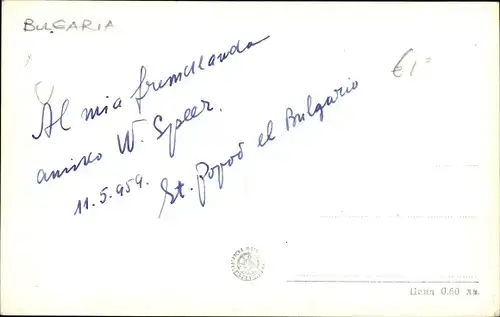 BULGARIA
€1
Al mia fremdlanda
amiko W. Speer.
11.5.959. St. Popov el Bulgario
Цена 0.60 лв.